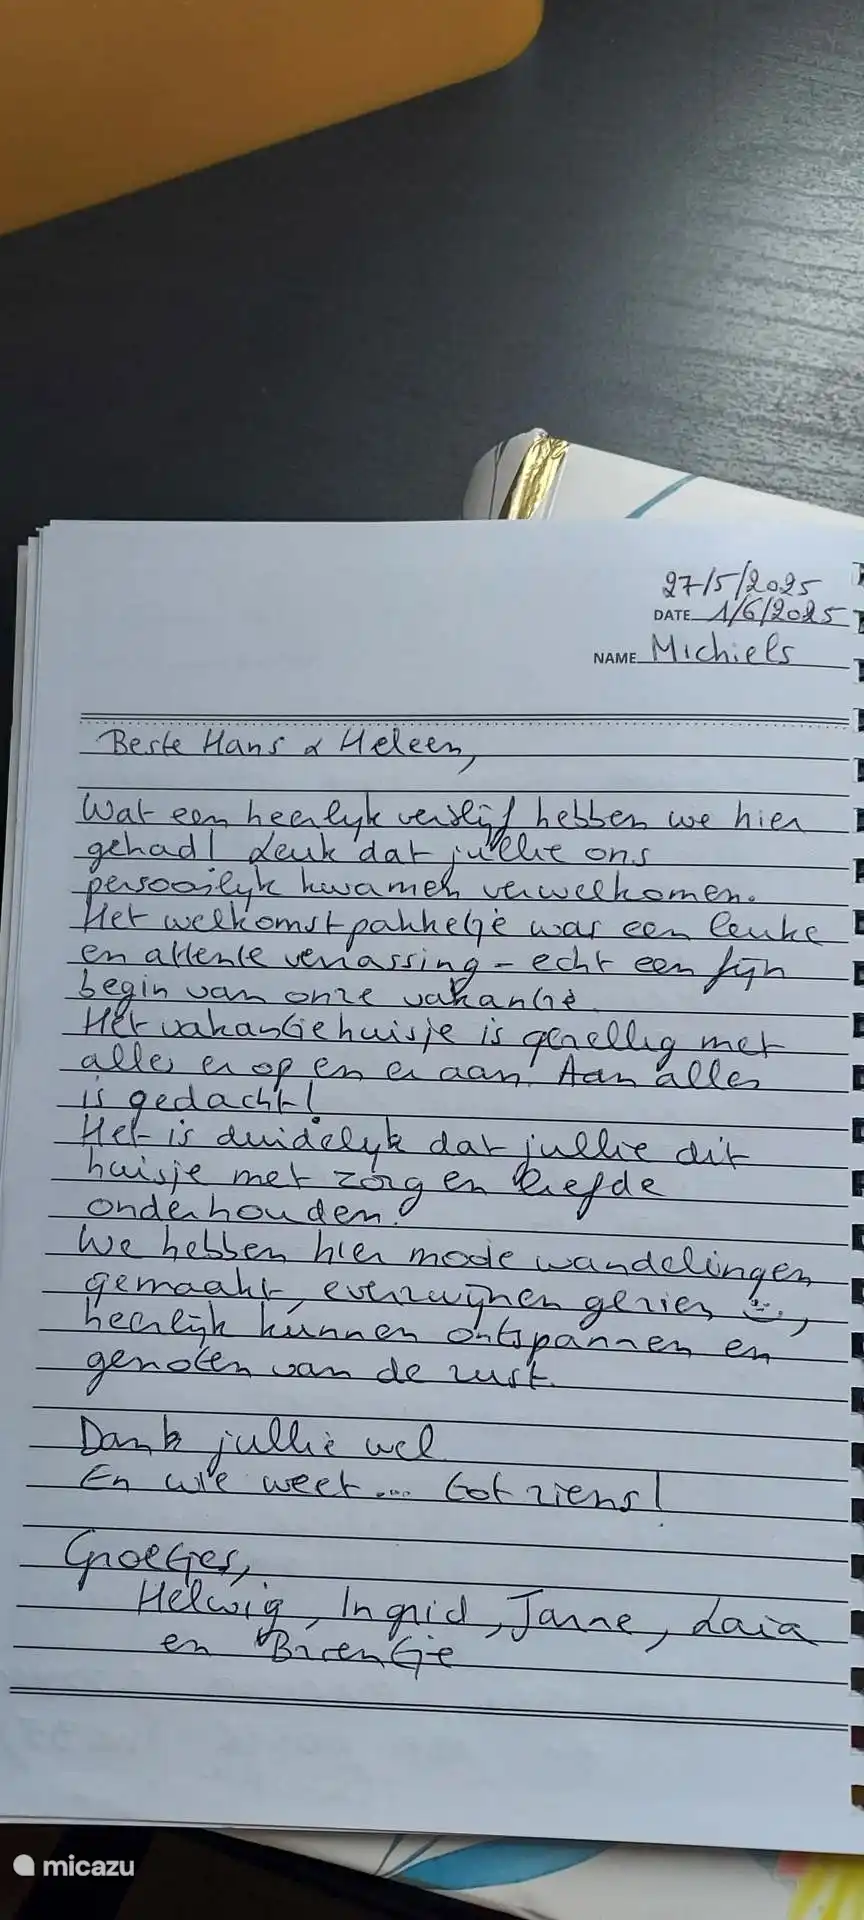 27/5/2025
DATE 1/6/2025
NAME Michiels
Beste Hans & Heleen,
Wat een heerlijk verblijf hebben we hier
gehad! Leuk dat jullie ons
persoonlijk kwamen verwelkomen.
Het welkomstpakketje was een leuke
en attente verrassing - echt een fijn
begin van onze vakantie.
Het vakantiehuisje is gezellig met
alles er op en er aan. Aan alles
is gedacht!
Het is duidelijk dat jullie dit
huisje met zorg en liefde
onderhouden.
We hebben hier mooie wandelingen
gemaakt, everzwijnen gezien ☺,
heerlijk kunnen ontspannen en
genoten van de rust.
Dank jullie wel
En wie weet... tot ziens!
Groetjes,
Helwig, Ingrid, Janne, Laia
en Broentje
micazu